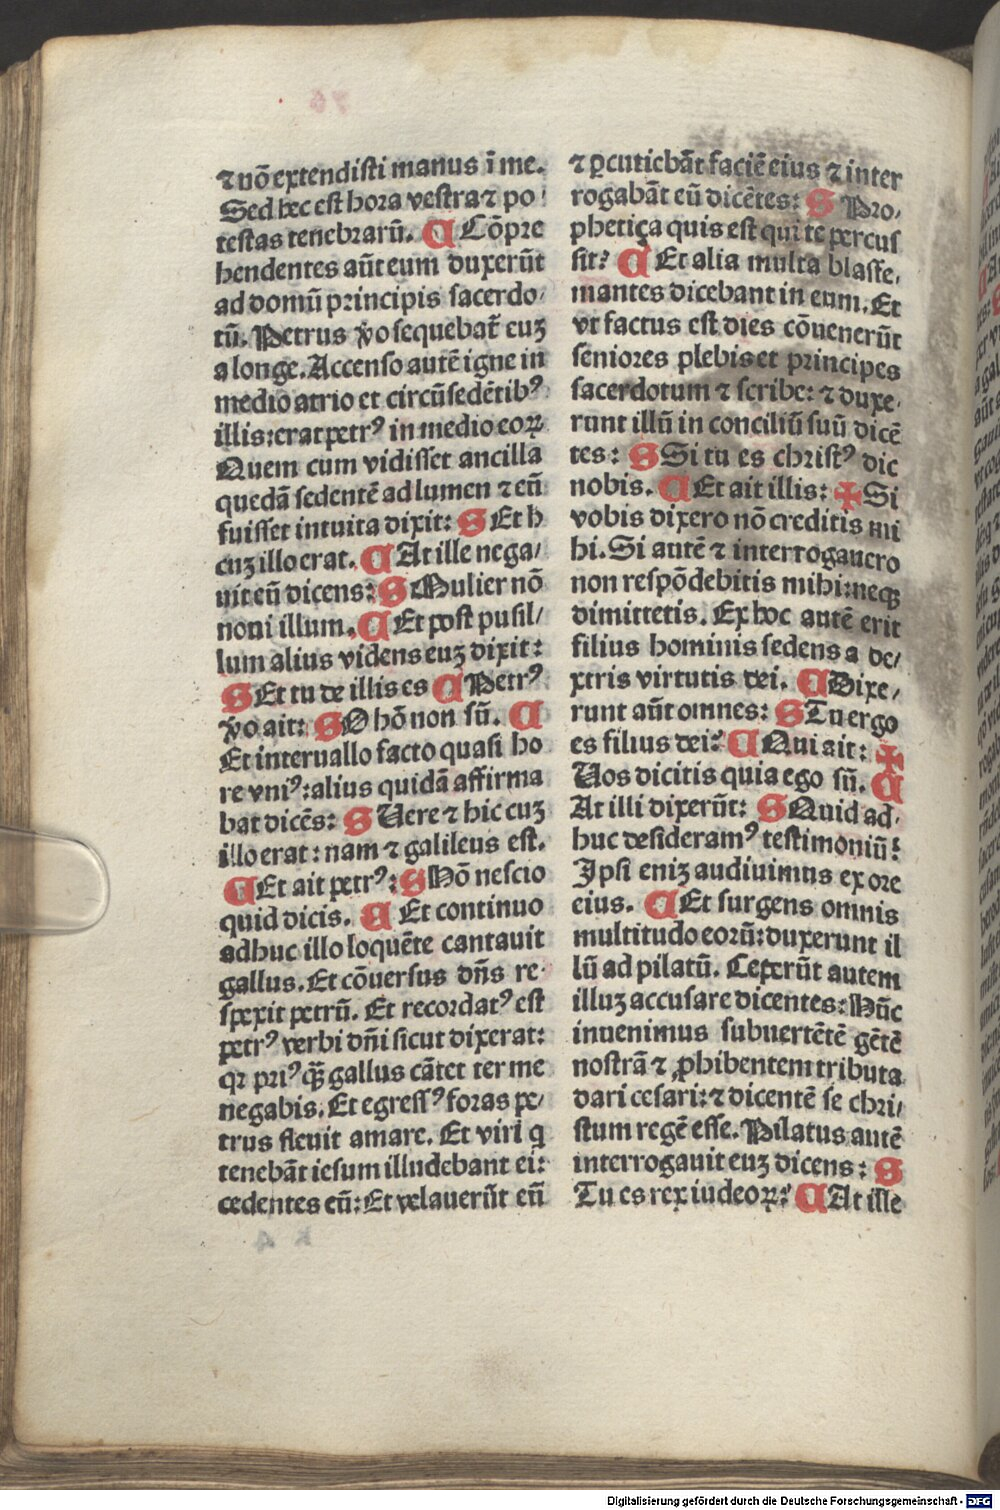 ⁊ nō extendisti manus ī me.
Sed hec est hora vestra ⁊ po-
testas tenebrarū. C Cōpre
hendentes aūt eum duxerūt
ad domū principis sacerdo-
tū. Petrus v̊o sequebat̄ euꝫ
a longe. Accenso autē igne in
medio atrio et circūsedētibꝰ
illis: erat petrꝰ in medio eoꝝ
Quem cum vidisset ancilla
quedā sedentē ad lumen ⁊ eū
fuisset intuita dixit: S Et h
cuꝫ illo erat. C At ille nega/
uit eū dicens: S Mulier nō
noui illum. C Et post pusil/
lum alius videns euꝫ dixit:
S Et tu de illis es C Petrꝰ
v̊o ait: S O hō non sū. C
Et interuallo facto quasi ho
re vniꝰ: alius quidā affirma
bat dicēs: S Uere ⁊ hic cuꝫ
illo erat: nam ⁊ galileus est.
C Et ait petrꝰ: S Hō nescio
quid dicis. C Et continuo
adhuc illo loquēte cantauit
gallus. Et cōuersus dn̄s re-
spexit petrū. Et recordatꝰ est
petrꝰ verbi dn̄i sicut dixerat:
qꝛ priꝰq̄ꝫ gallus cātet ter me
negabis. Et egressꝰ foras pe/
trus fleuit amare. Et viri q
tenebāt iesum illudebant ei:
cedentes eū: Et velauerūt eū
⁊ ꝑcutiebāt faciē eius ⁊ inter
rogabāt eū dicētes: S Pro-
phetiça quis est qui te percus
sit? C Et alia multa blasfe,
mantes dicebant in eum. Et
vt factus est dies cōuenerūt
seniores plebis et principes
sacerdotum ⁊ scribe: ⁊ duxe-
runt illū in conciliū suū dicē
tes: S Si tu es christꝰ dic
nobis. C Et ait illis: ✠ Si
vobis dixero nō creditis mi
hi. Si autē ⁊ interrogauero
non respōdebitis mihi: neqꝫ
dimittetis. Ex hoc autē erit
filius hominis sedens a de/
xtris virtutis dei. C Dixe/
runt aūt omnes: S Tu ergo
es filius dei? C Qui ait: ✠
Uos dicitis quia ego sū. C
At illi dixerūt: S Quid ad-
huc desideramꝰ testimoniū?
Ipsi eniꝫ audiuimus ex ore
eius. C Et surgens omnis
multitudo eorū: duxerunt il
lū ad pilatū. Ceperūt autem
illuꝫ accusare dicentes: Hūc
inuenimus subuertētē gētē
nostrā ⁊ ꝓhibentem tributa
dari cesari: ⁊ dicentē se chri/
stum regē esse. Pilatus autē
interrogauit euꝫ dicens: S
Tu es rex iudeoꝝ? C At ille
Digitalisierung gefördert durch die Deutsche Forschungsgemeinschaft - DFG